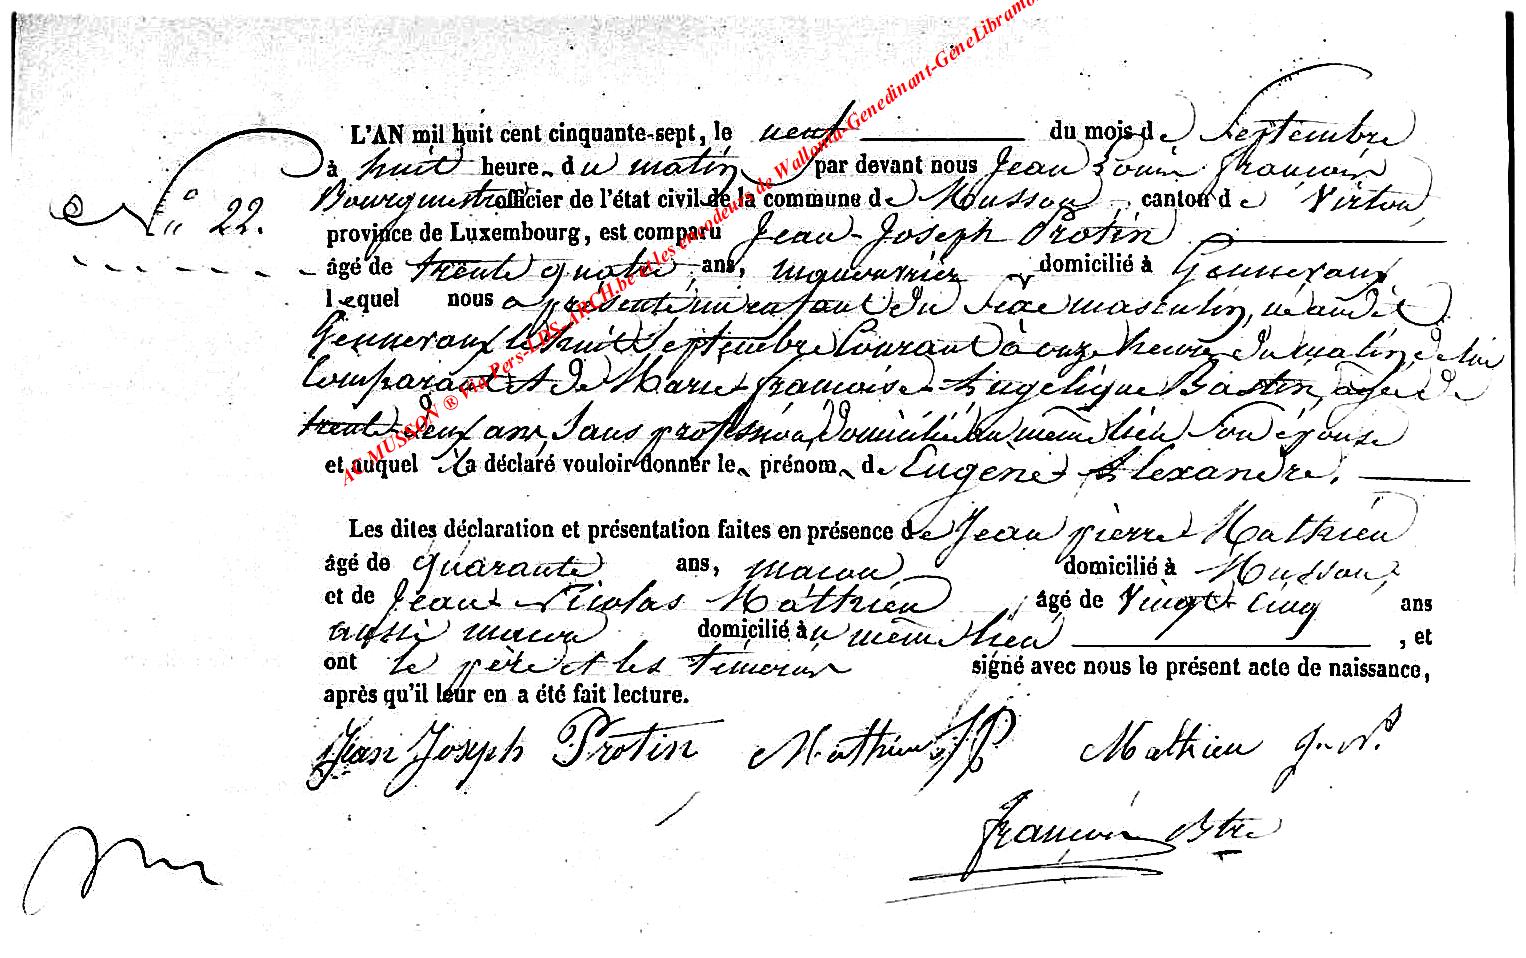 AC MUSSON ® via Pers-LDS-ARCH.be et les encodeurs de Wallonia-Genedinant-GeneLibramo
L'AN mil huit cent cinquante-sept, le neuf du mois de Septembre
à huit heures du matin par devant nous Jean Louis François
N° 22.
Bourgmestre officier de l'état civil de la commune de Musson canton de Virton,
province de Luxembourg, est comparu Jean-Joseph Protin
âgé de trente quatre ans, domicilié à Gennevaux
lequel nous a présenté un enfant du sexe masculin, né audit
Gennevaux le huit Septembre Courant à onze heures du matin de lui
Comparant et de Marie-françoise-Angélique Bastin, agée de
trente-deux ans, sans profession, domiciliée au même lieu son épouse
et auquel il a déclaré vouloir donner les prénoms de Eugène Alexandre.
Les dites déclaration et présentation faites en présence de Jean pierre Mathieu
âgé de quarante ans, maçon domicilié à Musson,
et de Jean-Nicolas Mathieu âgé de vingt-cinq ans
aussi maçon domicilié au même lieu , et
ont le père et les témoins signé avec nous le présent acte de naissance,
après qu'il leur en a été fait lecture.
Jean Joseph Protin Mathieu JP Mathieu J.N.
François Bstre